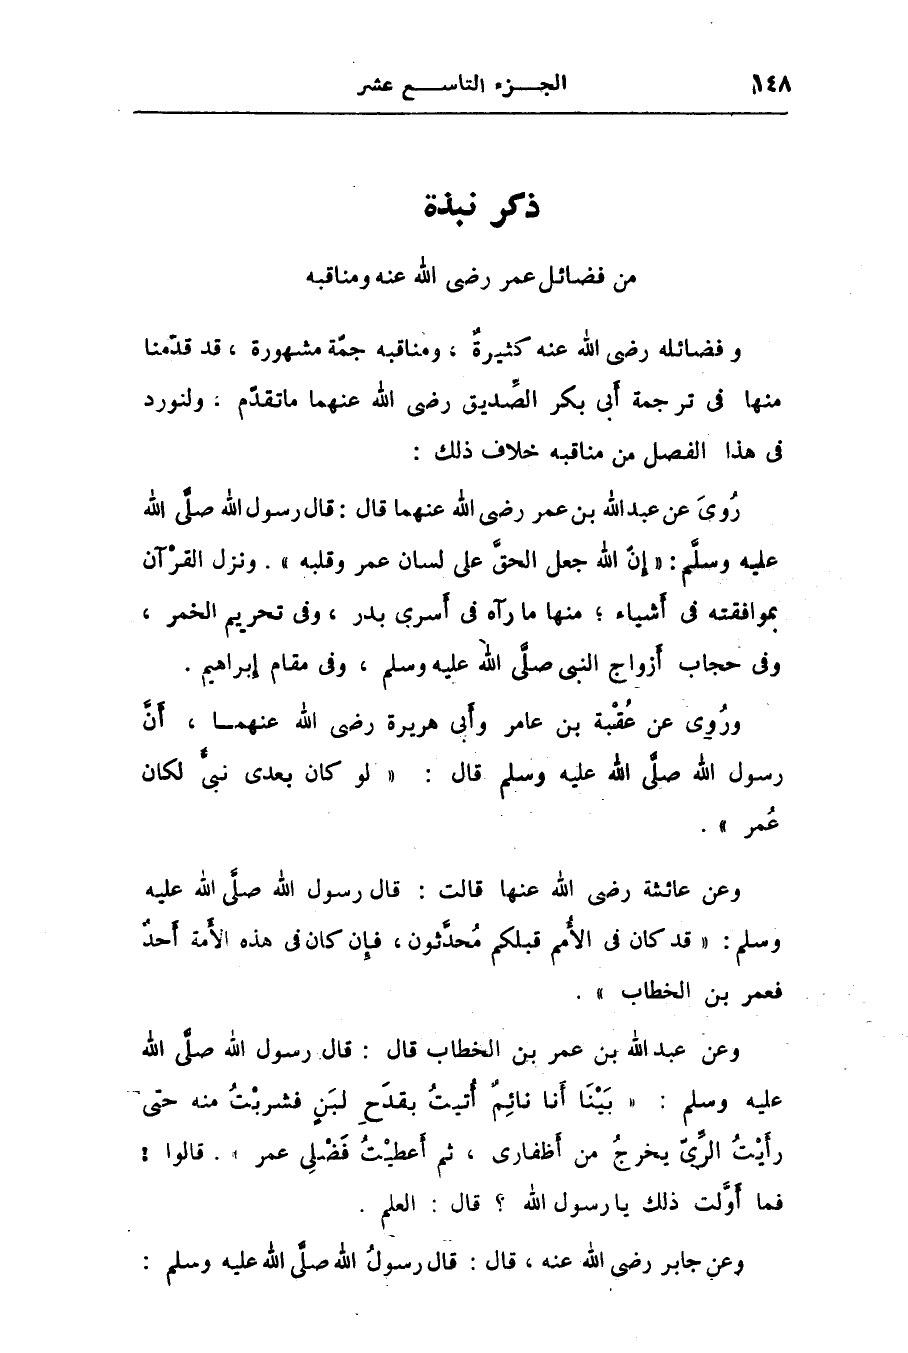 ١٤٨ الجـــزء التاســـع عشر
ذكر نبذة
من فضائل عمر رضى الله عنه ومناقبه
و فضائله رضى الله عنه كثيرةٌ ، ومناقبه جمّة مشهورة ، قد قدّمنا
منها فى ترجمة أبى بكر الصِّديق رضى الله عنهما ماتقدّم ، ولنورد
فى هذا الفصل من مناقبه خلاف ذلك :
رُوىَ عن عبدالله بن عمر رضى الله عنهما قال : قال رسول الله صلَّى الله
عليه وسلَّم : « إنّ الله جعل الحقَّ على لسان عمر وقلبه » . ونزل القرْآن
بموافقته فى أشياء ؛ منها ما رآه فى أسرى بدر ، وفى تحريم الخمر ،
وفى حجاب أزواج النبى صلَّى الله عليه وسلم ، وفى مقام إبراهيم .
ورُوِى عن عُقْبة بن عامر وأبى هريرة رضى الله عنهمـا ، أنَّ
رسول الله صلَّى الله عليه وسلم قال : « لو كان بعدى نبىٌّ لكان
عُمر » .
وعن عائشة رضى الله عنها قالت : قال رسول الله صلَّى الله عليه
وسلم : « قد كان فى الأُمم قبلكم مُحدَّثون ، فإن كان فى هذه الأمة أحدٌ
فعمر بن الخطاب » .
وعن عبدالله بن عمر بن الخطاب قال : قال رسول الله صلَّى الله
عليه وسلم : « بَيْنَا أنا نائِمٌ أُتيتُ بقدَحِ لبَنٍ فشربْتُ منه حتى
رأيْتُ الرِّىّ يخرجُ من أظفارى ، ثم أعطيْتُ فَضْلِى عمر » . قالوا :
فما أوَّلت ذلك يارسول الله ؟ قال : العلم .
وعن جابر رضى الله عنه ، قال : قال رسولُ الله صلَّى الله عليه وسلم :